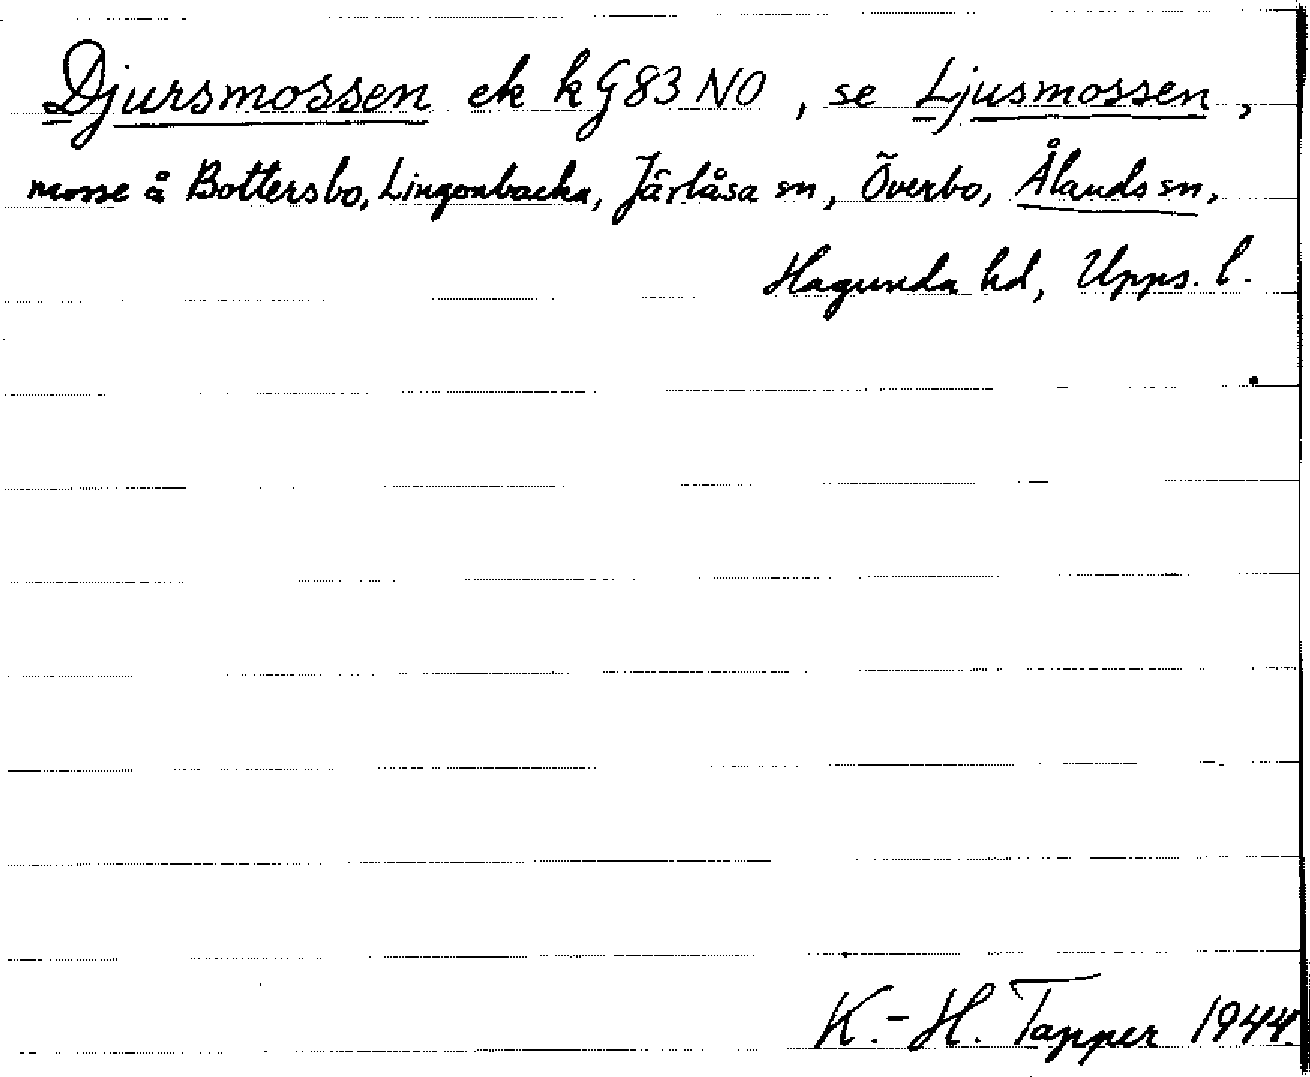 Djursmossen ek kG83 NO, se Ljusmossen,
mosse å Bottersbo, Lingonbacka, Järlåsa sn, Överbo, Ålands sn,
Hagunda hd, Upps. l.
K.-H. Tapper 1944.